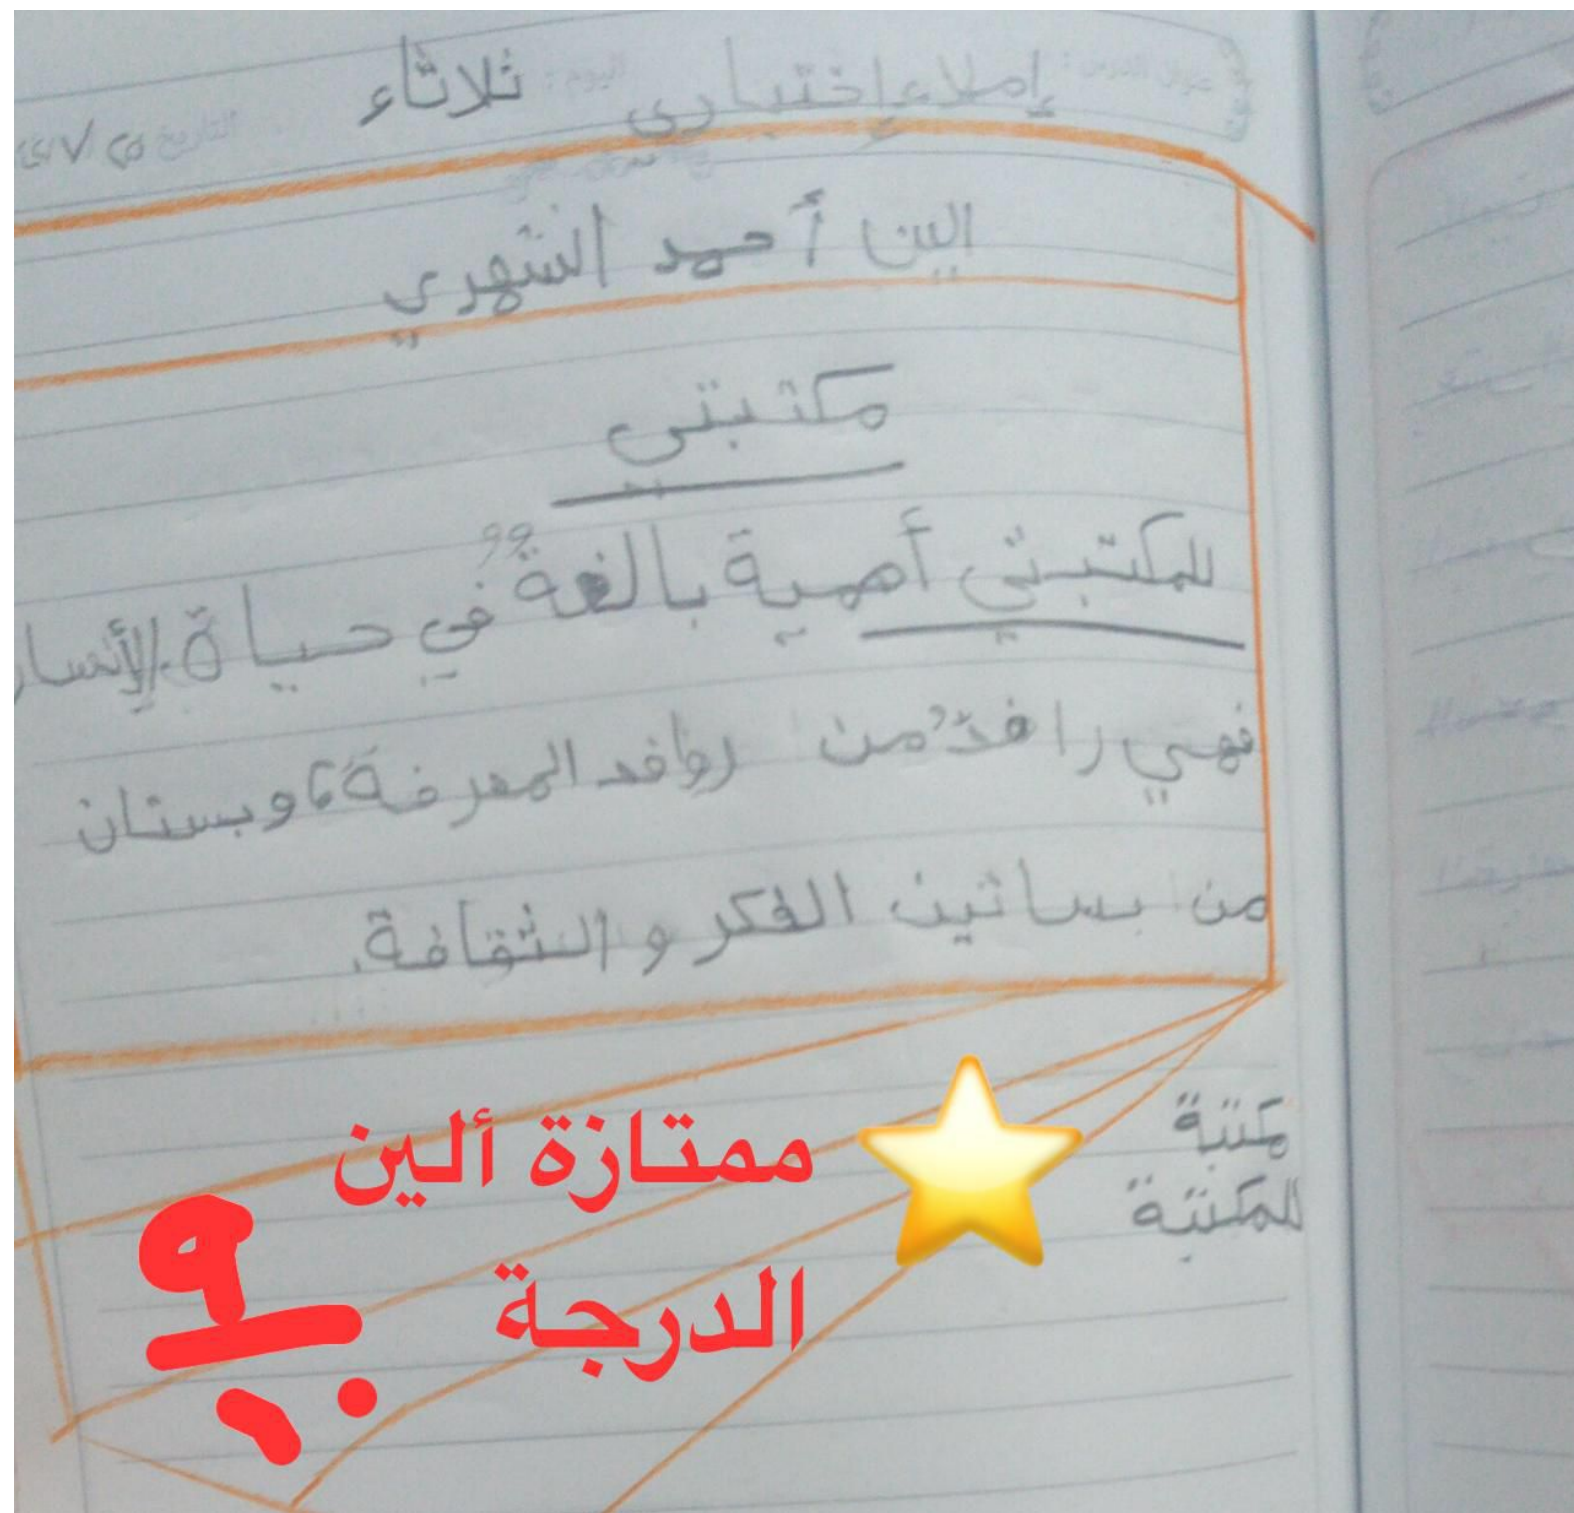 إملاء إختباري ثلاثاء
الين أحمد الشهري
مكتبتي
للمكتبتي أهمية بالغةٌ في حياة الإنسا
فهي رافدٌ من روافد المعرفة، وبستان
من بساتين الفكر والثقافة.
مكتبة
للمكتبة
ممتازة ألين
الدرجة ٩/١٠